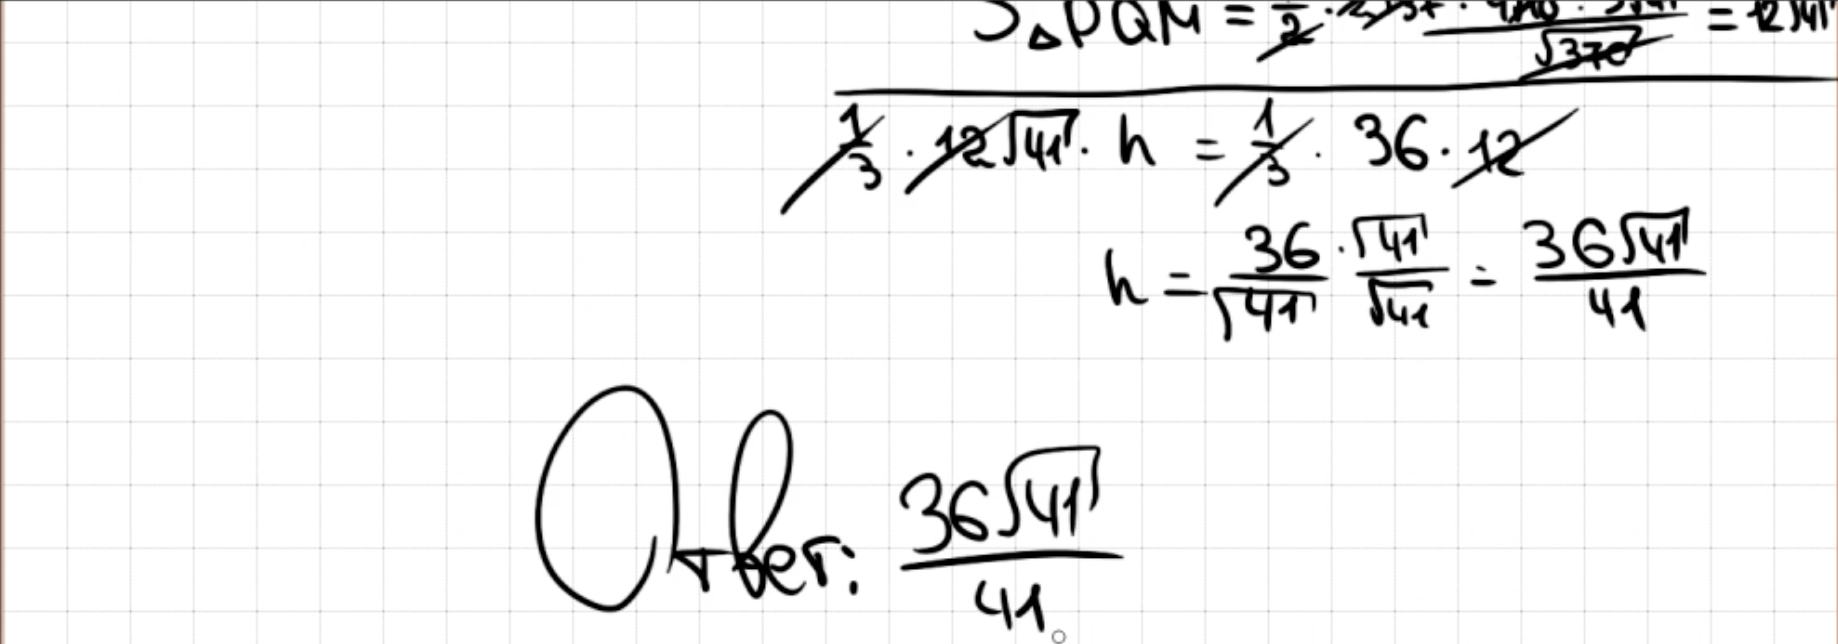 S△PQM = 1/2 · = 12√41
1/3 · 12√41 · h = 1/3 · 36 · 12
h = 36/√41 · √41/√41 = 36√41/41
Ответ: 36√41/41